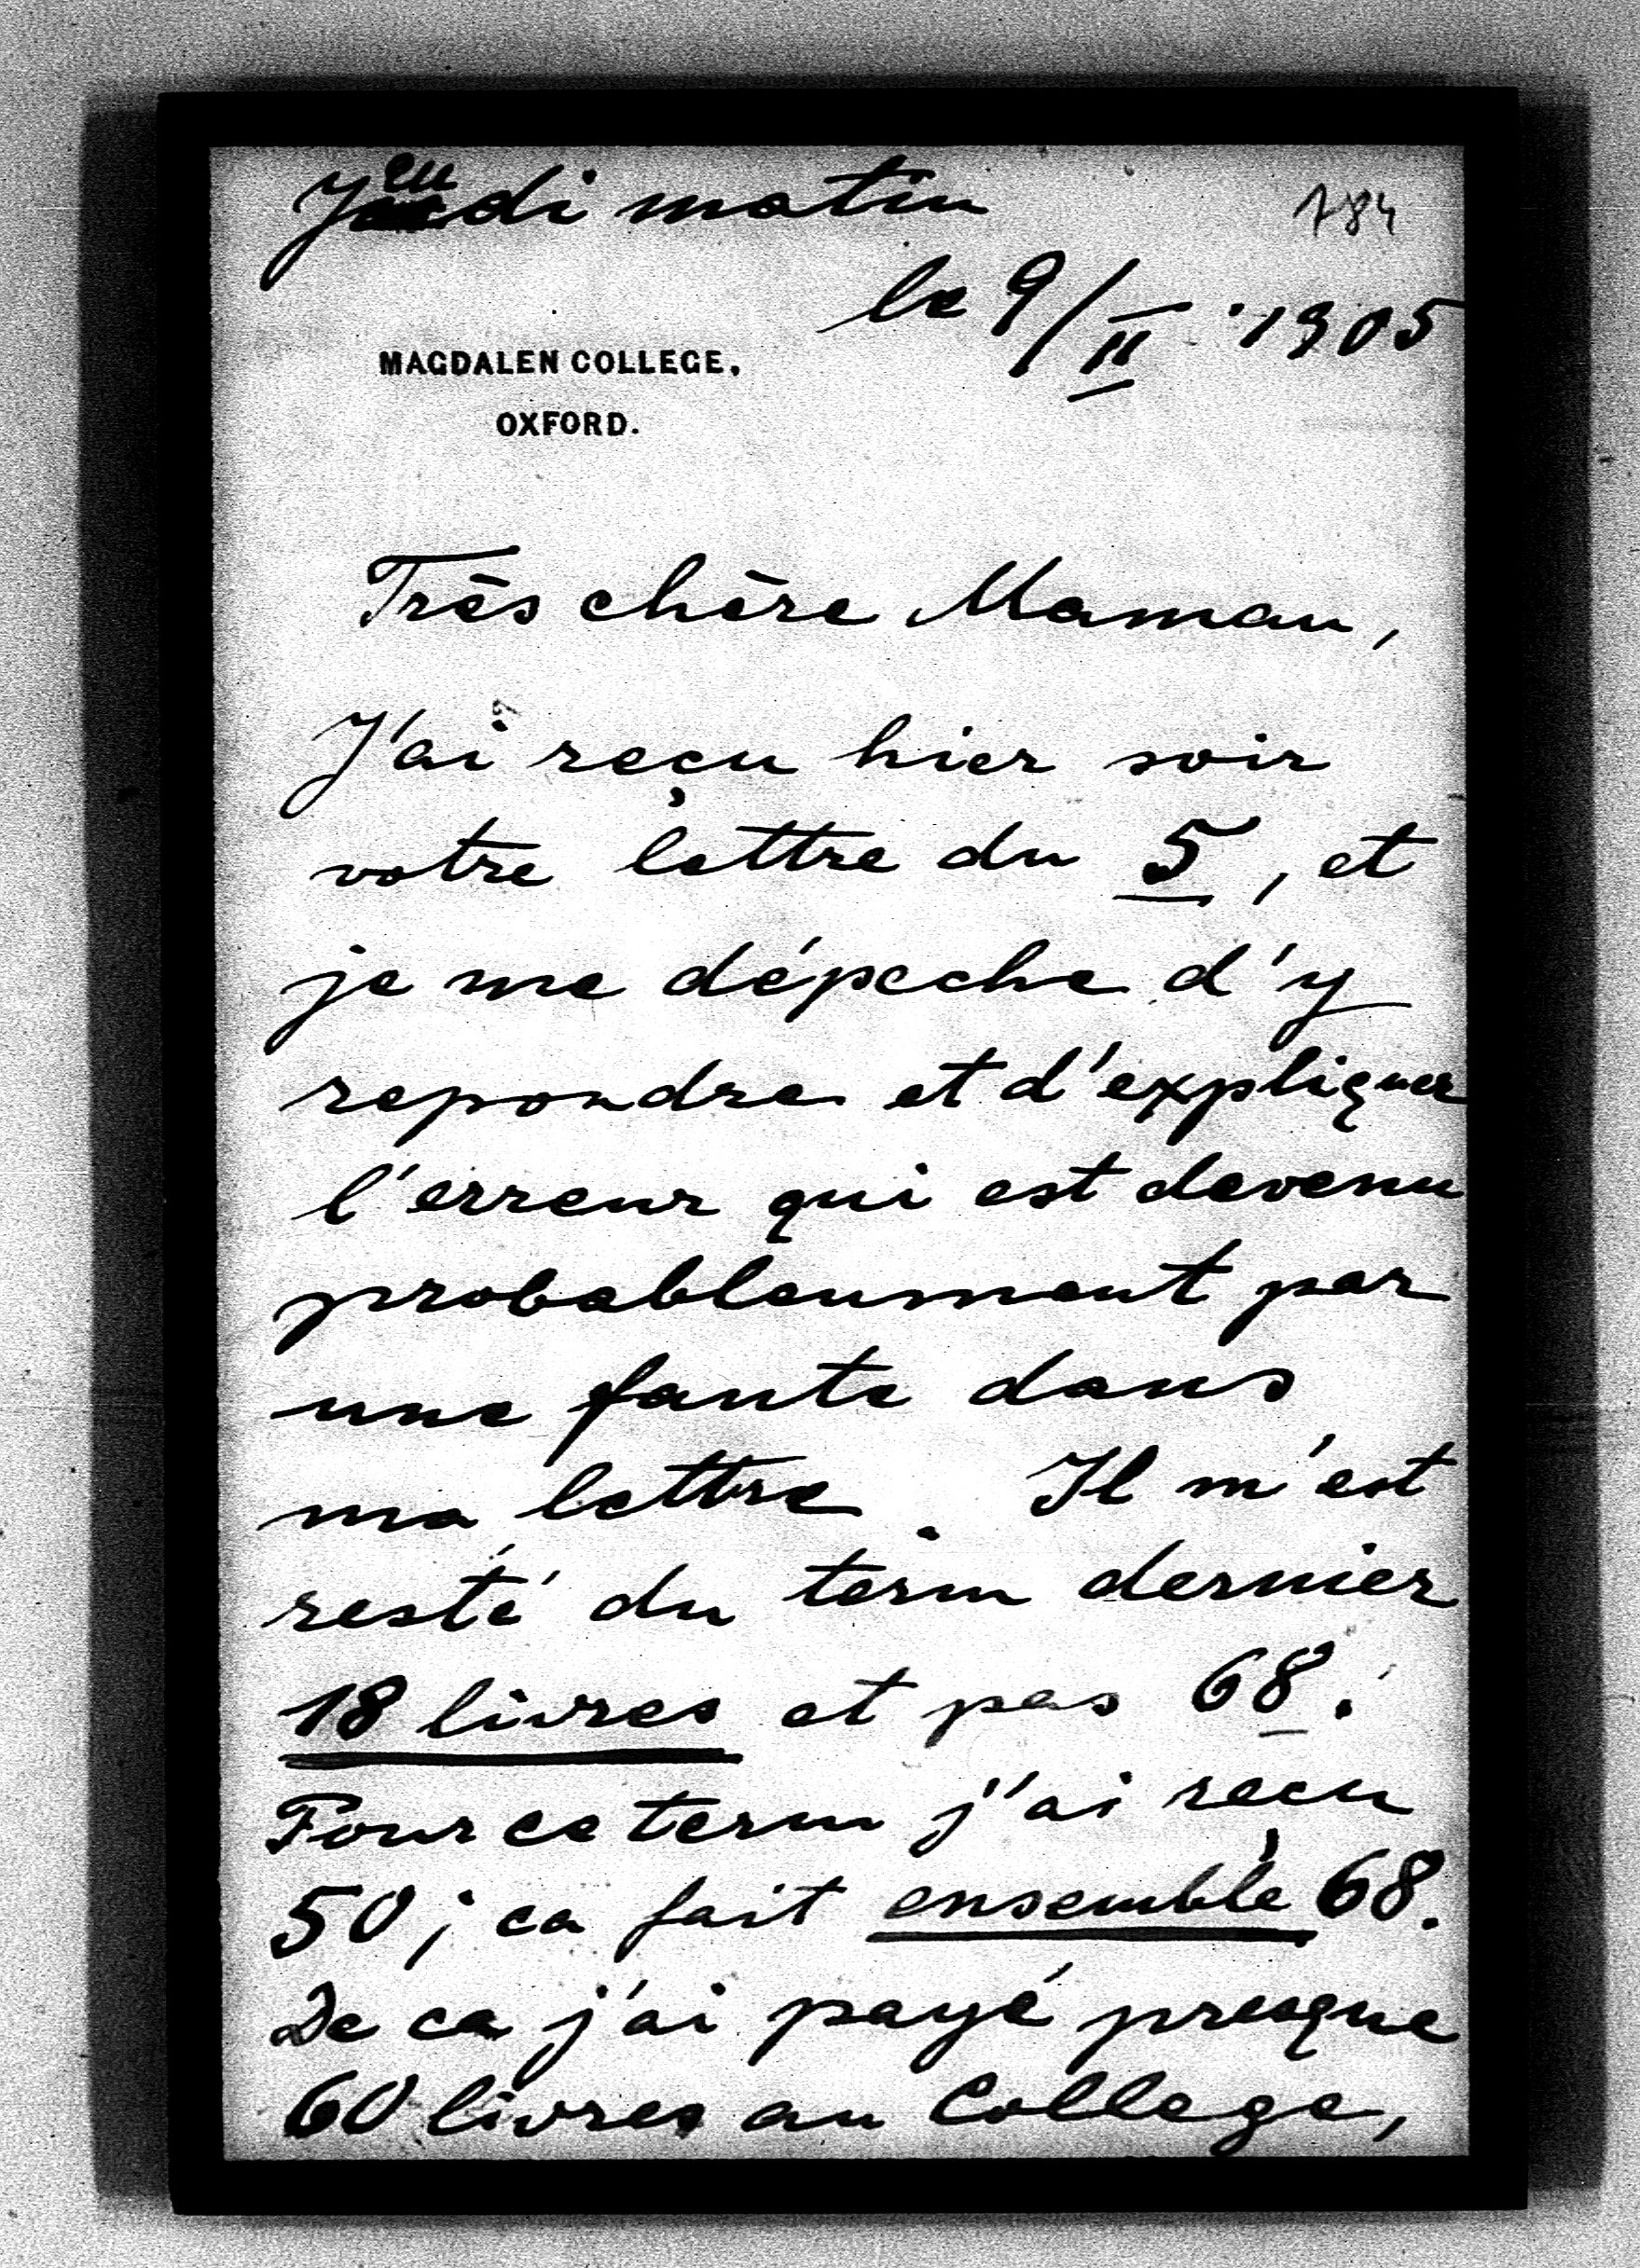 Jeudi matin
184
le 9/II 1905
MAGDALEN COLLEGE,
OXFORD.
Très chère Maman,
J'ai reçu hier soir
votre lettre du 5, et
je me dépeche d'y
repondre et d'expliquer
l'erreur qui est devenu
probableument par
une faute dans
ma lettre. Il m'est
resté du term dernier
18 livres et pas 68.
Pour ce term j'ai reçu
50; ca fait ensemble 68.
De ca j'ai payé presque
60 livres au College,